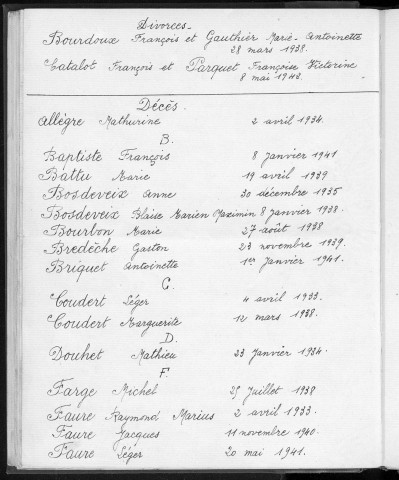 Divorces_
Bourdoux François et Gauthier Marie-Antoinette
28 mars 1938.
Catalot François et Parquet Françoise Victorine
8 mai 1943.
Décès.
Allègre Mathurine 2 avril 1934.
B.
Baptiste François 8 Janvier 1941
Battu Marie 19 avril 1939
Bosdeveix Anne 30 décembre 1935
Bosdeveix Blaise Marien Maximin 8 Janvier 1938.
Bourbon Marie 27 août 1938
Bredèche Gaston 23 novembre 1939.
Briquet Antoinette 1er Janvier 1941.
C.
Coudert Léger 4 avril 1933.
Coudert Marguerite 12 mars 1938.
D.
Douhet Mathieu 23 Janvier 1934.
F.
Farge Michel 25 Juillet 1938
Faure Raymond Marius 2 avril 1933.
Faure Jacques 11 novembre 1940.
Faure Léger 20 mai 1941.